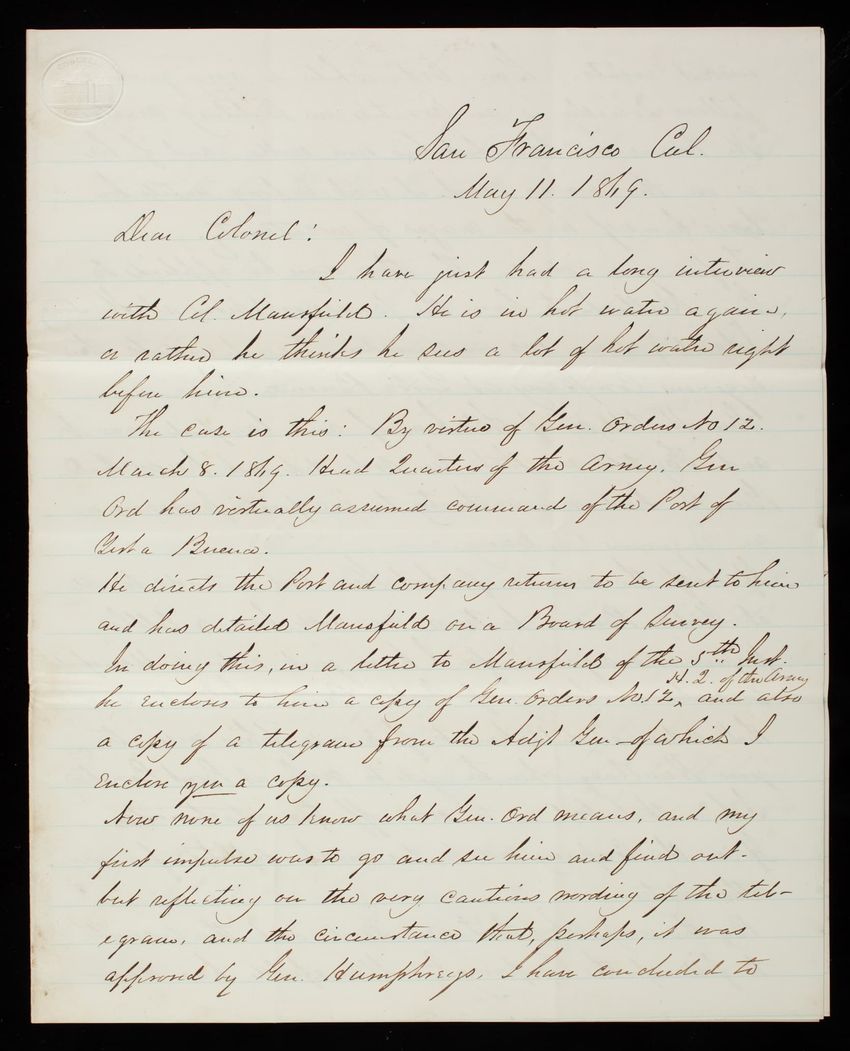 San Francisco Cal.
May 11. 1869.
Dear Colonel:
I have just had a long interview
with Col. Mansfield. He is in hot water again,
or rather he thinks he sees a lot of hot water right
before him.
The case is this: By virtue of Gen. Orders No 12.
March 8. 1869. Head Quarters of the Army, Gen
Ord has virtually assumed command of the Post of
Yerba Buena.
He directs the Post and company returns to be sent to him
and has detailed Mansfield on a Board of Survey.
In doing this, in a letter to Mansfield of the 5th Inst.
H. Q. of the Army
he encloses to him a copy of Gen. Orders No. 12 ^ and also
a copy of a telegram from the Adjt Gen - of which I
enclose you a copy.
Now none of us know what Gen. Ord means, and my
first impulse was to go and see him and find out -
but reflecting on the very cautious wording of the tel-
egram, and the circumstance that, perhaps, it was
approved by Gen. Humphreys, I have concluded to